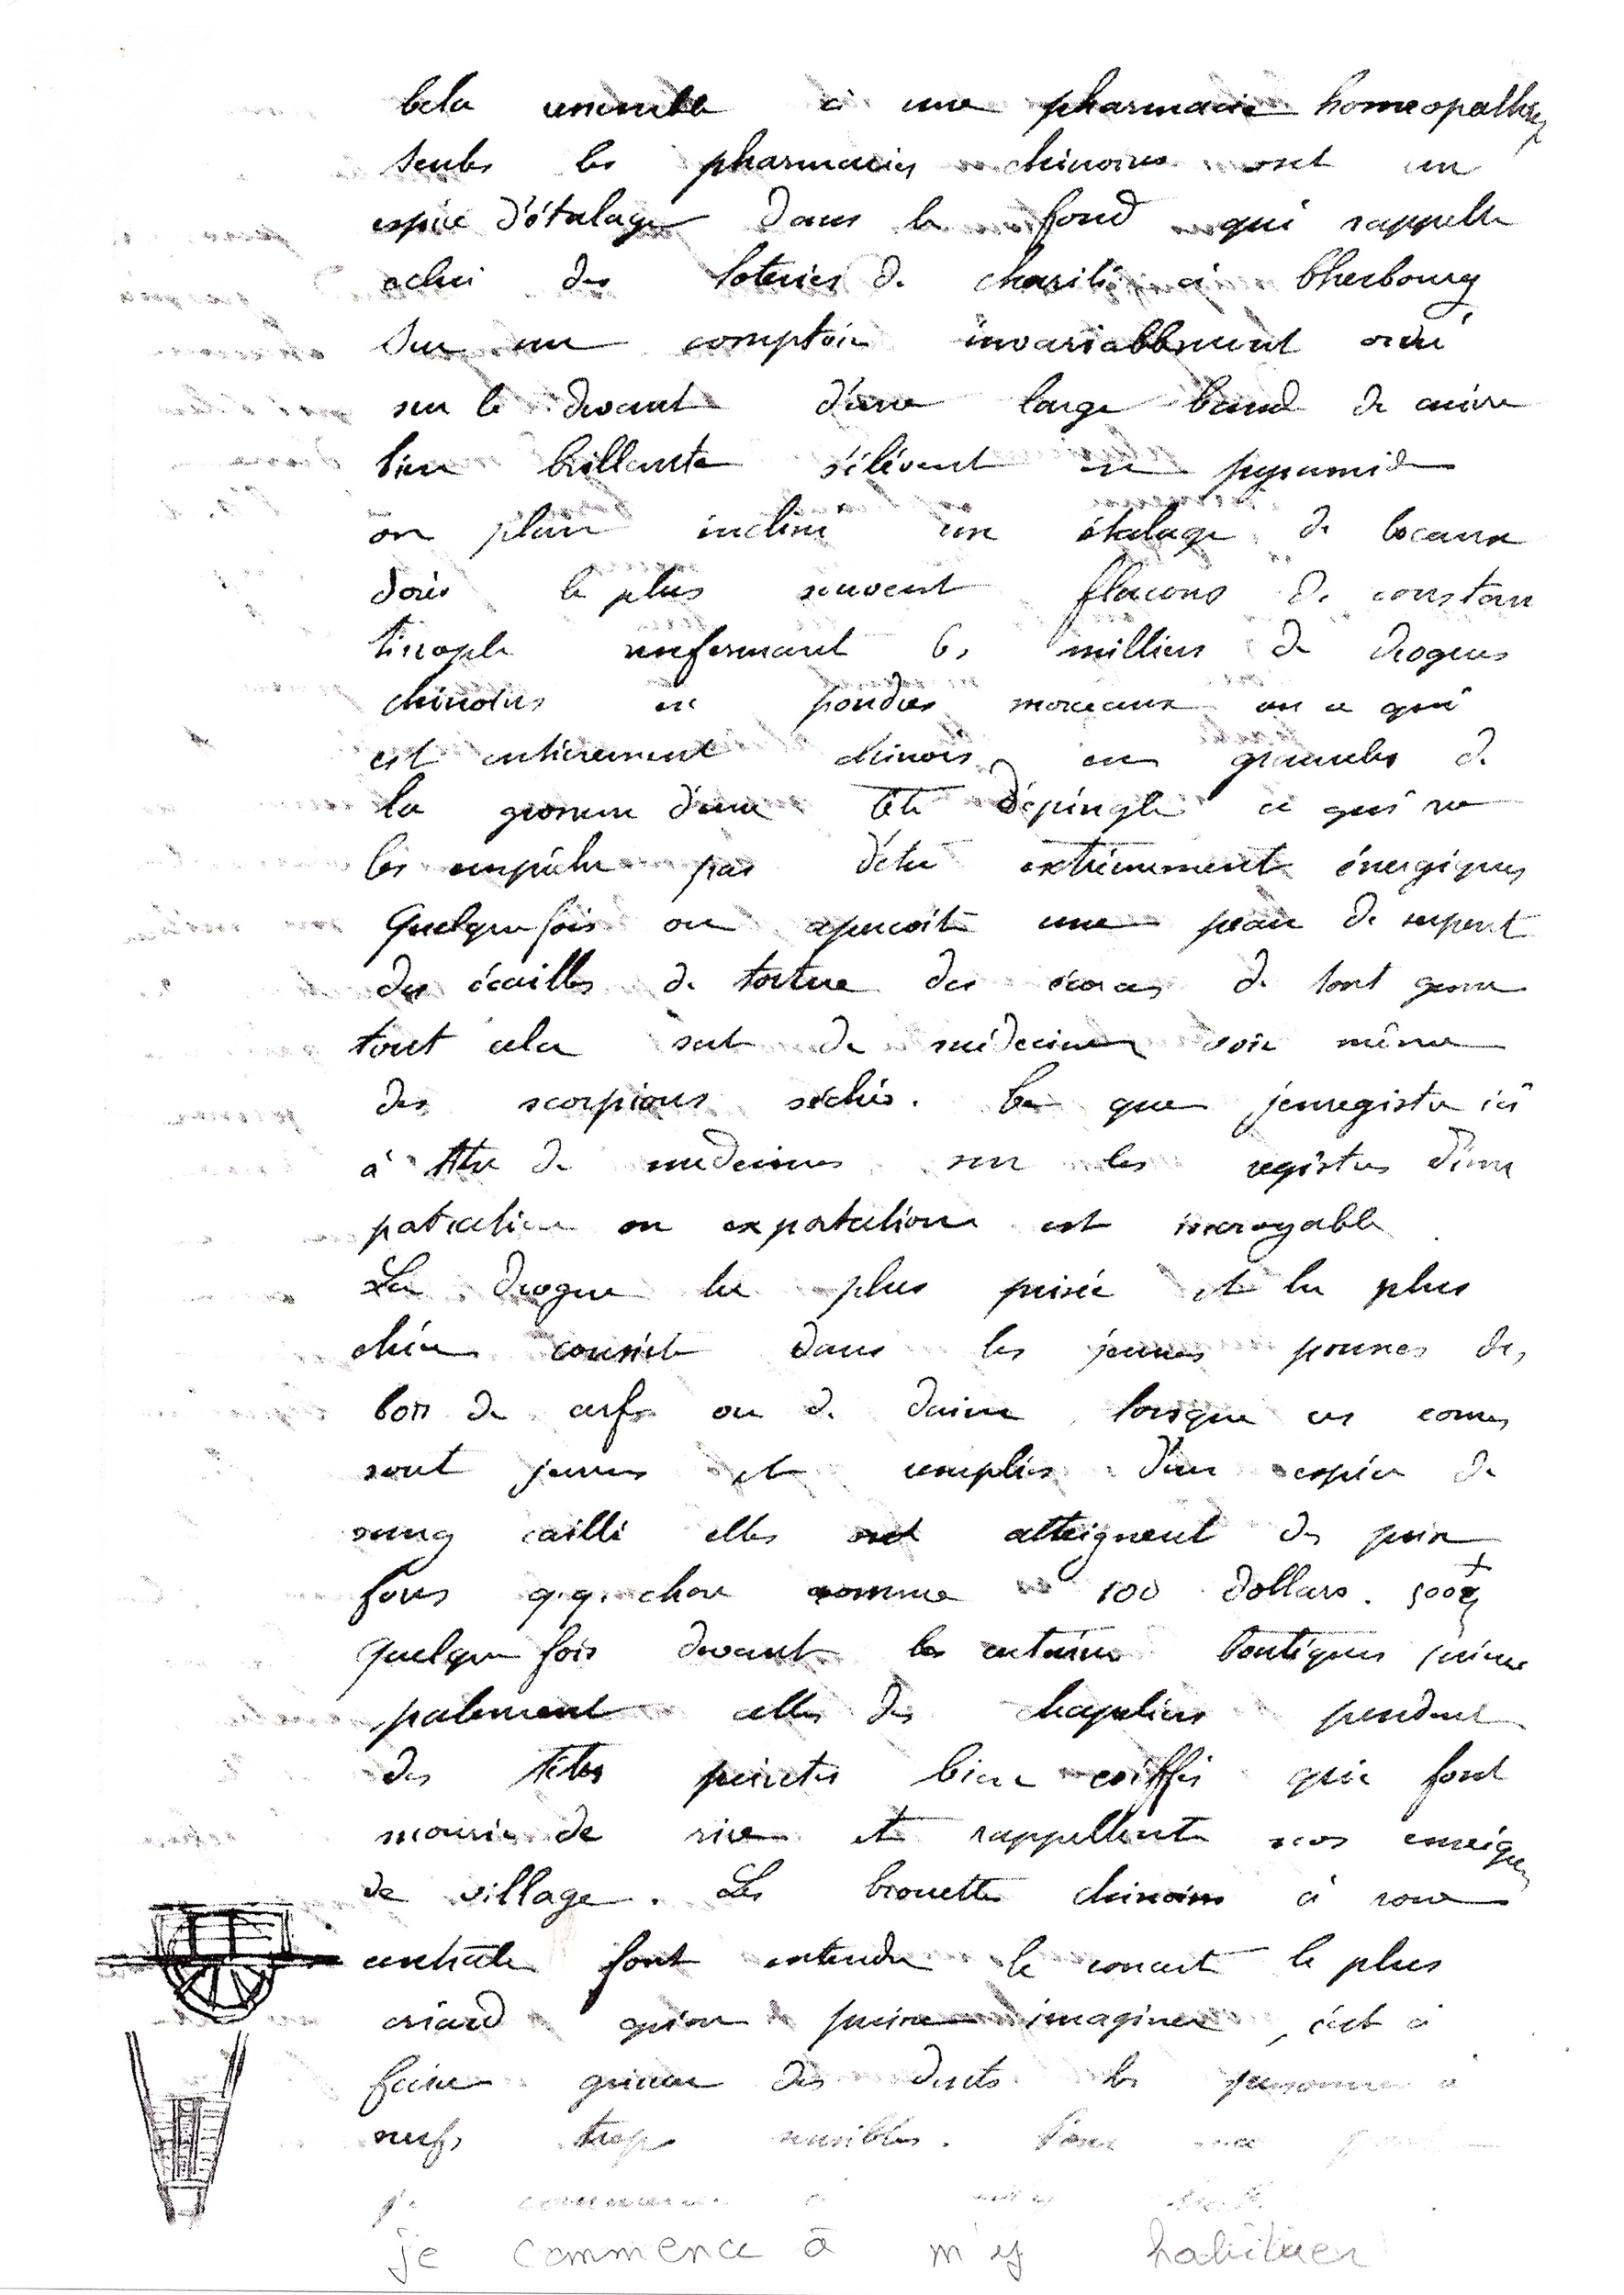 Cela ressemble à une pharmacie homeopathiq
Seules les pharmacies chinoises ont un
espèce d'étalage dans le fond qui rappelle
celui des loteries de charité à Cherbourg
Sur un comptoir invariablement orné
sur le devant d'une large bande de cuivre
bien brillante s'élèvent en pyramide
ou plan incliné un étalage de bocaux
dorés le plus souvent flacons de constan
tinople renfermant les milliers de drogues
chinoises en poudres morceaux ou ce qui
est entièrement chinois en granules de
la grosseur d'une tête d'épingle ce qui ne
les empêche pas d'être extrêmement énergiques
Quelquefois on aperçoit une peau de serpent
des écailles de tortue des écorces de tout genre
tout cela sert de médecine voir même
des scorpions séchés. Ce que j'enregistre ici
à titre de médecines sur les registres d'im
portation ou exportation est incroyable
La drogue la plus prisée et la plus
chère consiste dans les jeunes pousses des
bois de cerfs ou de daims lorsque ces cornes
sont jeunes et remplies d'un espèce de
sang caillé elles atteignent des prix
fous q.q. chose comme 100 dollars. 500f
Quelque fois devant les certaines boutiques princi
palement celles des chapeliers pendent
des têtes peintes bien coiffés qui font
mourir de rire et rappellent nos enseignes
de village. Les brouettes chinoises à roue
centrale font entendre le concert le plus
criard qu'on puisse imaginer, c'est à
faire grincer des dents les personnes à
nerfs trop sensibles. Pour ma part
je commence à
je commence à m'y habituer